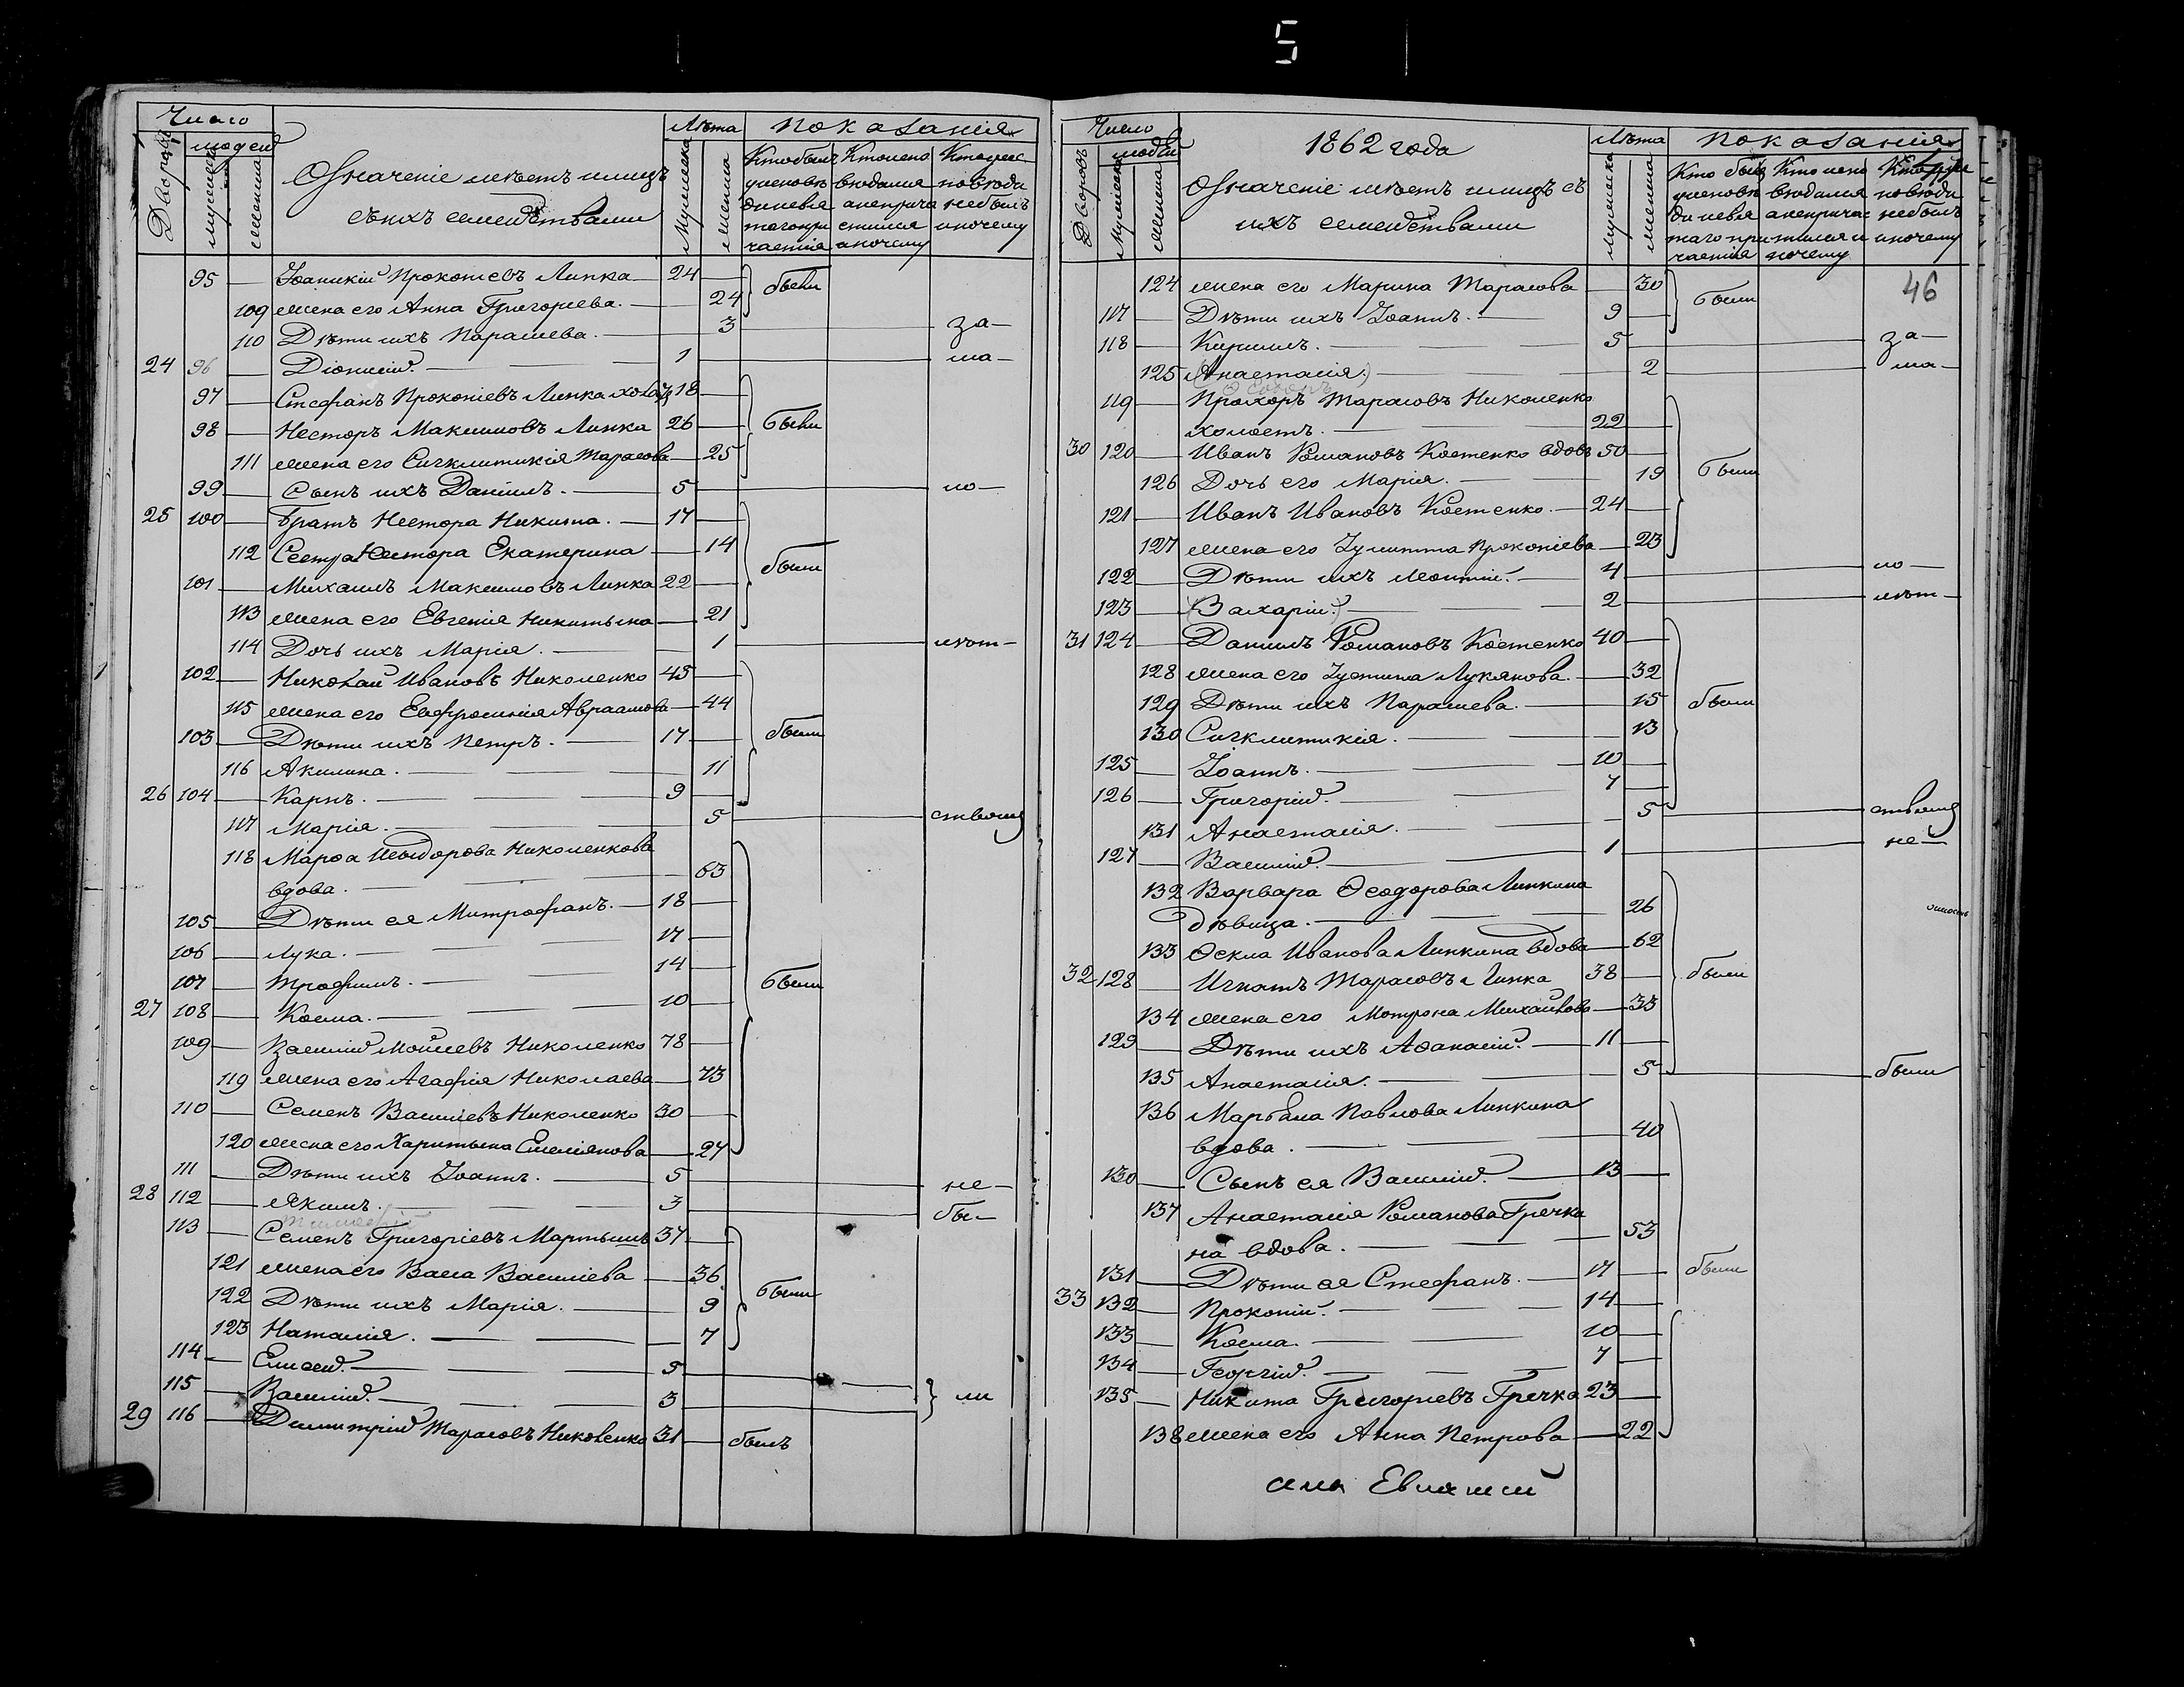 5
Число
Дворовъ
людей
мужеска
женска
Означеніе мѣстъ и лицъ
съ ихъ семействами
Лѣта
Мужеска
женска
Показанія
Кто былъ у исповѣди и святаго причастія
Кто исповѣдался а непричастился и почему
Кто у исповѣди небылъ и почему
95 — Іоаникій Прокопіевъ Липка — 24 — были
109 жена его Анна Григорьева. — 24
110 Дѣти ихъ Парашева. — 3 — за —
24 96 — Діонисій. — 1 — ма —
97 — Стефанъ Прокопіевъ Липка холос 18 —
98 — Несторъ Максимовъ Липка 26 — были
111 жена его Сигклитикія Тарасова — 25
99 — Сынъ ихъ Даніилъ. — 5 — ло —
25 100 — Братъ Нестора Никита. — 17 —
112 Сестра Нестора Екатерина — 14 были
101 — Михаилъ Максимовъ Липка 22 —
113 жена его Евгенія Никитына — 21
114 Дочь ихъ Марія. — 1 — лѣт —
102 — Николай Ивановъ Николенко 45 —
115 жена его Евфросинія Авраамова — 44
103 — Дѣти ихъ Петръ. — 17 — были
116 Акилина. — 11
26 104 — Карпъ. — 9 —
117 Марія. — 5 — ствомъ
118 Марфа Исидорова Николенкова
вдова. — 63
105 — Дѣти ея Митрофанъ. — 18 —
106 — Лука. — 17 —
107 — Трофимъ. — 14 — были
27 108 — Косма. — 10 —
109 — Василій Мойсеевъ Николенко 78 —
119 жена его Агафія Николаева — 73
110 — Семенъ Васильевъ Николенко 30 —
120 жена его Харитына Емеліянова — 27
111 — Дѣти ихъ Іоаннъ. — 5 — не —
28 112 — Якимъ. — 3 — бы —
Тимофей
113 — Семенъ Григоріевъ Мартышъ 37 —
121 жена его Васса Васильева — 36
122 Дѣти ихъ Марія. — 9 были
123 Наталія. — 7
114 — Елисей. — 5
115 — Василій. — 3 — ли
29 116 — Димитрій Тарасовъ Николенко 31 — былъ
Число
Дворовъ
людей
Мужеска
женска
1862 года
Означеніе мѣстъ и лицъ съ
ихъ семействами
Лѣта
мужеска
женска
Показанія
Кто былъ у исповѣди и святаго причастія
Кто исповѣдался а непричастился и почему
Кто у исповѣди небылъ и почему
46
124 жена его Марина Тарасова — 30 были
117 — Дѣти ихъ Іоаннъ. — 9 —
118 — Кирилъ. — 5 — за —
125 (Анастасія.) — 2 — ма —
119 — Прохоръ Тарасовъ Николенко
холостъ. — 22 —
30 120 — Иванъ Романовъ Костенко вдовъ 50 —
126 Дочь его Марія. — 19 были
121 — Иванъ Ивановъ Костенко. — 24 —
127 жена его Іулитта Прокопіева — 23
122 — Дѣти ихъ Леонтій. — 4 — ло —
123 — (Захарій.) — 2 — лѣт —
31 124 — Даниилъ Романовъ Костенко 40 —
128 жена его Іустина Лукянова. — 32
129 Дѣти ихъ Парашева. — 15 были
130 Сигклитикія. — 13
125 — Іоаннъ. — 10 —
126 — Григорій. — 7 —
131 Анастасія. — 5 — ствомъ
127 — Василій. — 1 — не —
132 Варвара Ѳеодорова Липкина
дѣвица. — 26
133 Ѳекла Иванова Липкина вдова — 62
32 128 — Игнатъ Тарасовъ Липка 38 — были
134 жена его Мотрона Михайлова — 33
129 — Дѣти ихъ Аѳанасій. — 11 —
135 Анастасія. — 5 — были
136 Марьяна Павлова Липкина
вдова. — 40
130 — Сынъ ея Василій. — 13 —
137 Анастасія Романова Гречки
на вдова. — 53
131 — Дѣти ея Стефанъ. — 17 — были
33 132 — Прокопій. — 14 —
133 — Косма. — 10 —
134 — Георгій. — 7 —
135 — Никита Григорьевъ Гречка 23 —
138 жена его Анна Петрова — 22